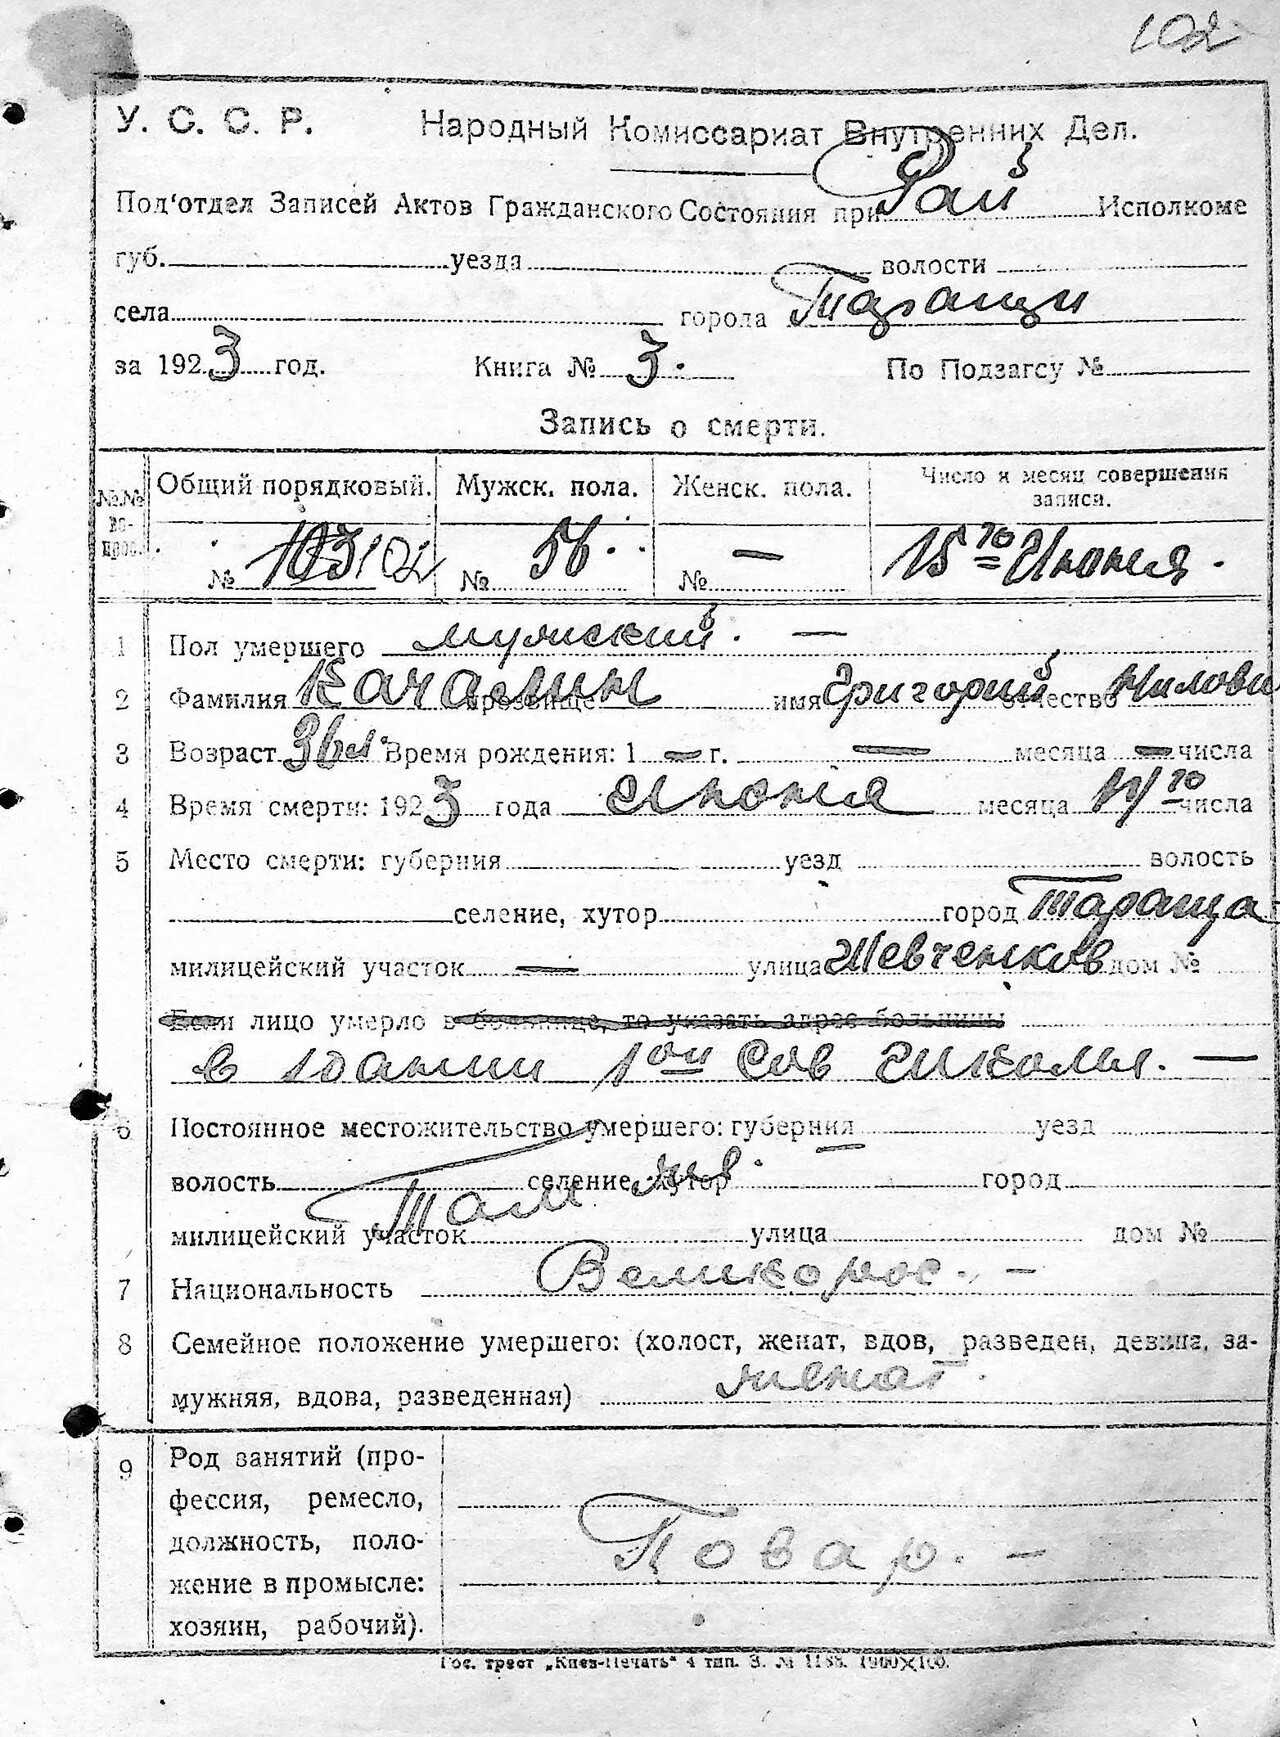 102
У. С. С. Р. Народный Комиссариат Внутренних Дел.
Под'отдел Записей Актов Гражданского Состояния при Рай Исполкоме
губ. уезда волости
села города Таращи
за 1923 год. Книга № 3. По Подзагсу №
Запись о смерти.
№№ во-прос. Общий порядковый. Мужск. пола. Женск. пола. Число и месяц совершения записи.
№ 103 102 № 56. № — 15го Июня.
1 Пол умершего мужский. —
2 Фамилия Качалин прозвище имя Григорий отчество Нилович
3 Возраст 36 л. Время рождения: 1 — г. — месяца — числа
4 Время смерти: 1923 года Июня месяца 14го числа
5 Место смерти: губерния уезд волость
селение, хутор город Тараща
милицейский участок — улица Шевченков дом №
Если лицо умерло в больнице, то указать адрес больницы
в здании 1ой Сов школы. —
6 Постоянное местожительство умершего: губерния уезд
волость селение, хутор город
Там же.
милицейский участок улица дом №
7 Национальность Великорос. —
8 Семейное положение умершего: (холост, женат, вдов, разведен, девица, за-
мужняя, вдова, разведенная) женат.
9 Род занятий (про-
фессия, ремесло,
должность, поло-
жение в промысле:
хозяин, рабочий).
Повар. —
Гос. трест „Киев-Печать“ 4 тип. З. №